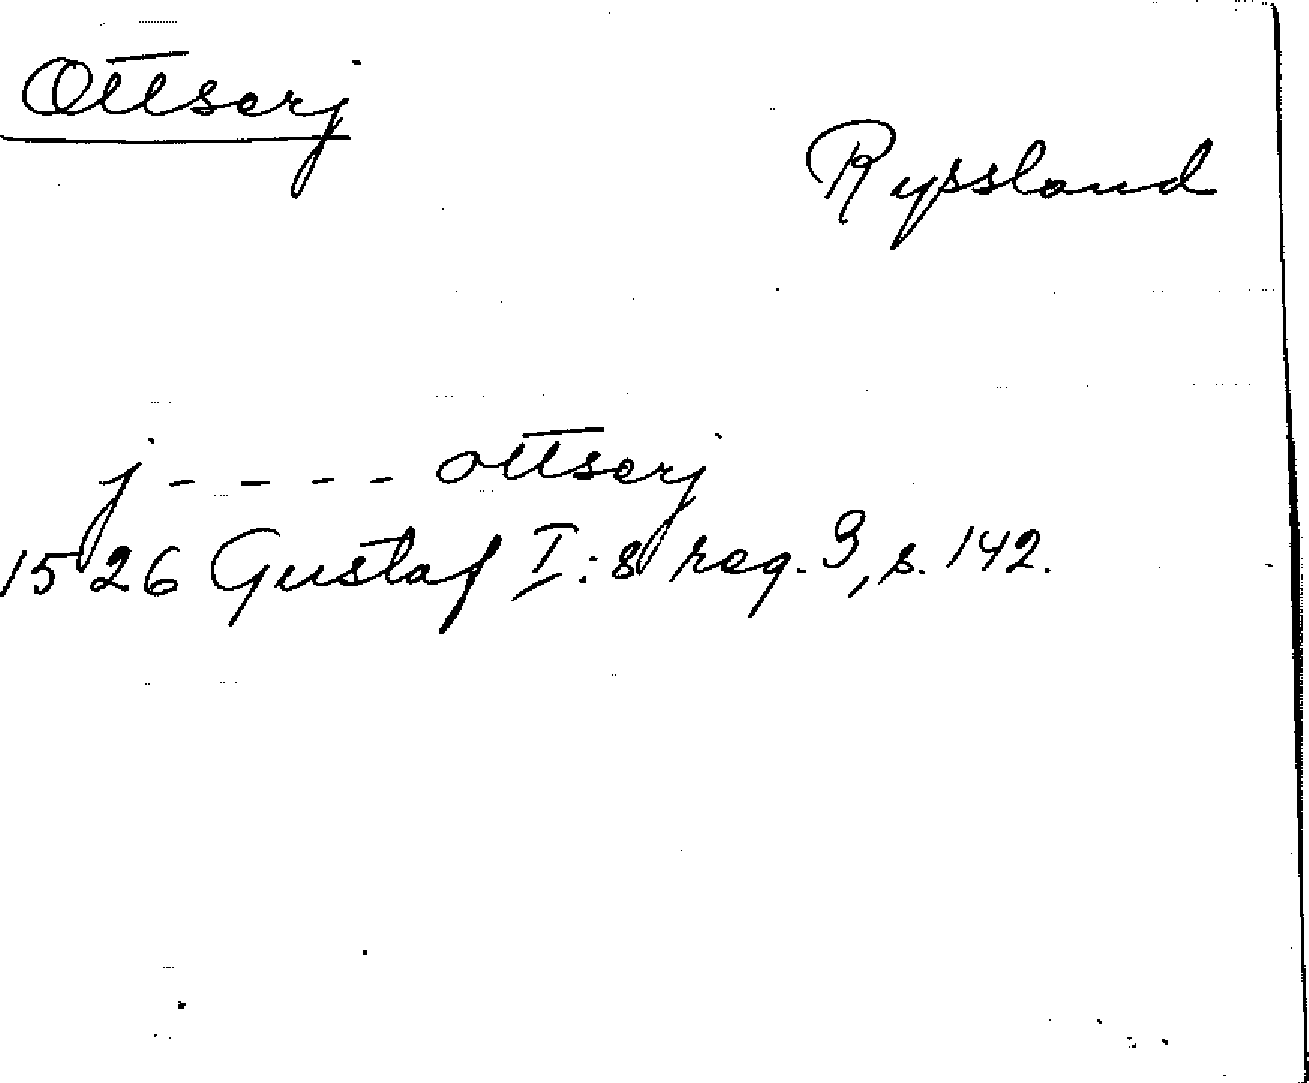 Ottserj
Ryssland
j - - - - ottserj
1526 Gustaf I:s reg. 3, s. 142.